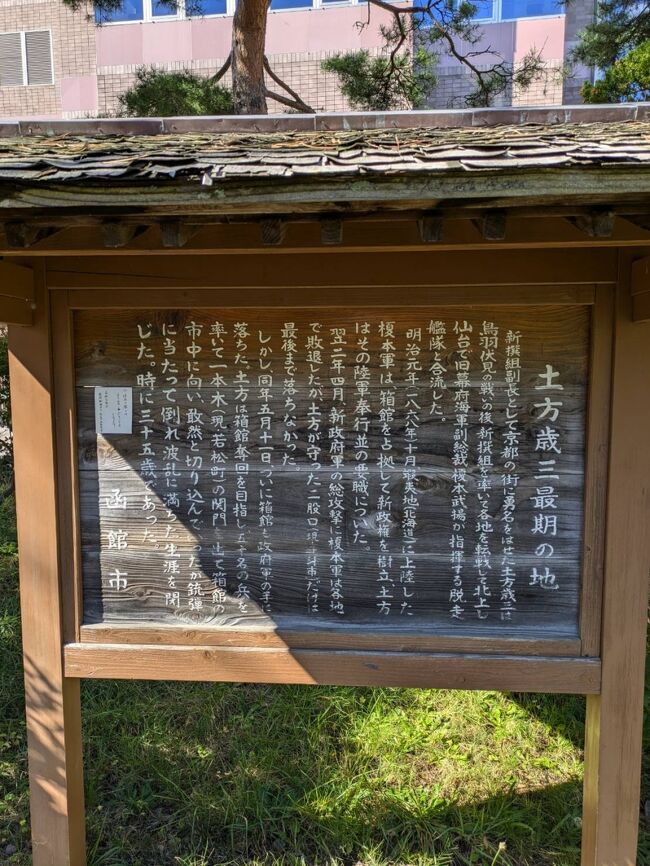 土方歳三最期の地
新撰組副長として京都の街に勇名をはせた土方歳三は
鳥羽伏見の戦の後新撰組を率いて各地を転戦して北上し
仙台で旧幕府海軍副総裁榎本武揚が指揮する脱走
艦隊と合流した。
明治元年(一八六八年)十月蝦夷地(北海道)に上陸した
榎本軍は、箱館を占拠して新政権を樹立、土方
はその陸軍奉行並の要職についた。
翌二年四月、新政府軍の総攻撃に榎本軍は各地
で敗退したが、土方が守った二股口は
最後まで落ちなかった。
しかし、同年五月十一日ついに箱館も政府軍の手に
落ちた。土方は箱館奪回を目指し、五十名の兵を
率いて一本木(現若松町)の関門を出て箱館の
市中に向い、敢然と切り込んで いったが銃弾
に当たって倒れ、波乱に満ちた生涯を閉
じた。時に三十五歳であった。
函館市